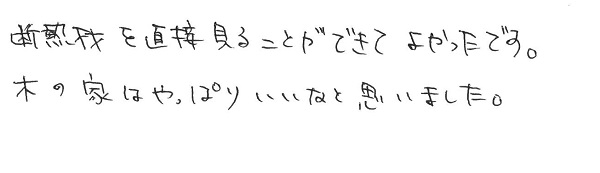 断熱材を直接見ることができてよかったです。
木の家はやっぱりいいなと思いました。